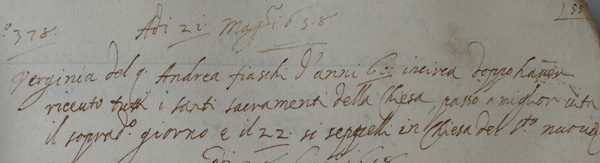 378. Adi 22. Magg. 1658. 155
Verginia del q. Andrea fiaschi d'anni 6 incirca doppo haver
riceuto tutti i santi sacramenti della Chiesa, passo a miglior vita
il soprado. giorno e il 22. si seppellì in Chiesa del sto. nuovo